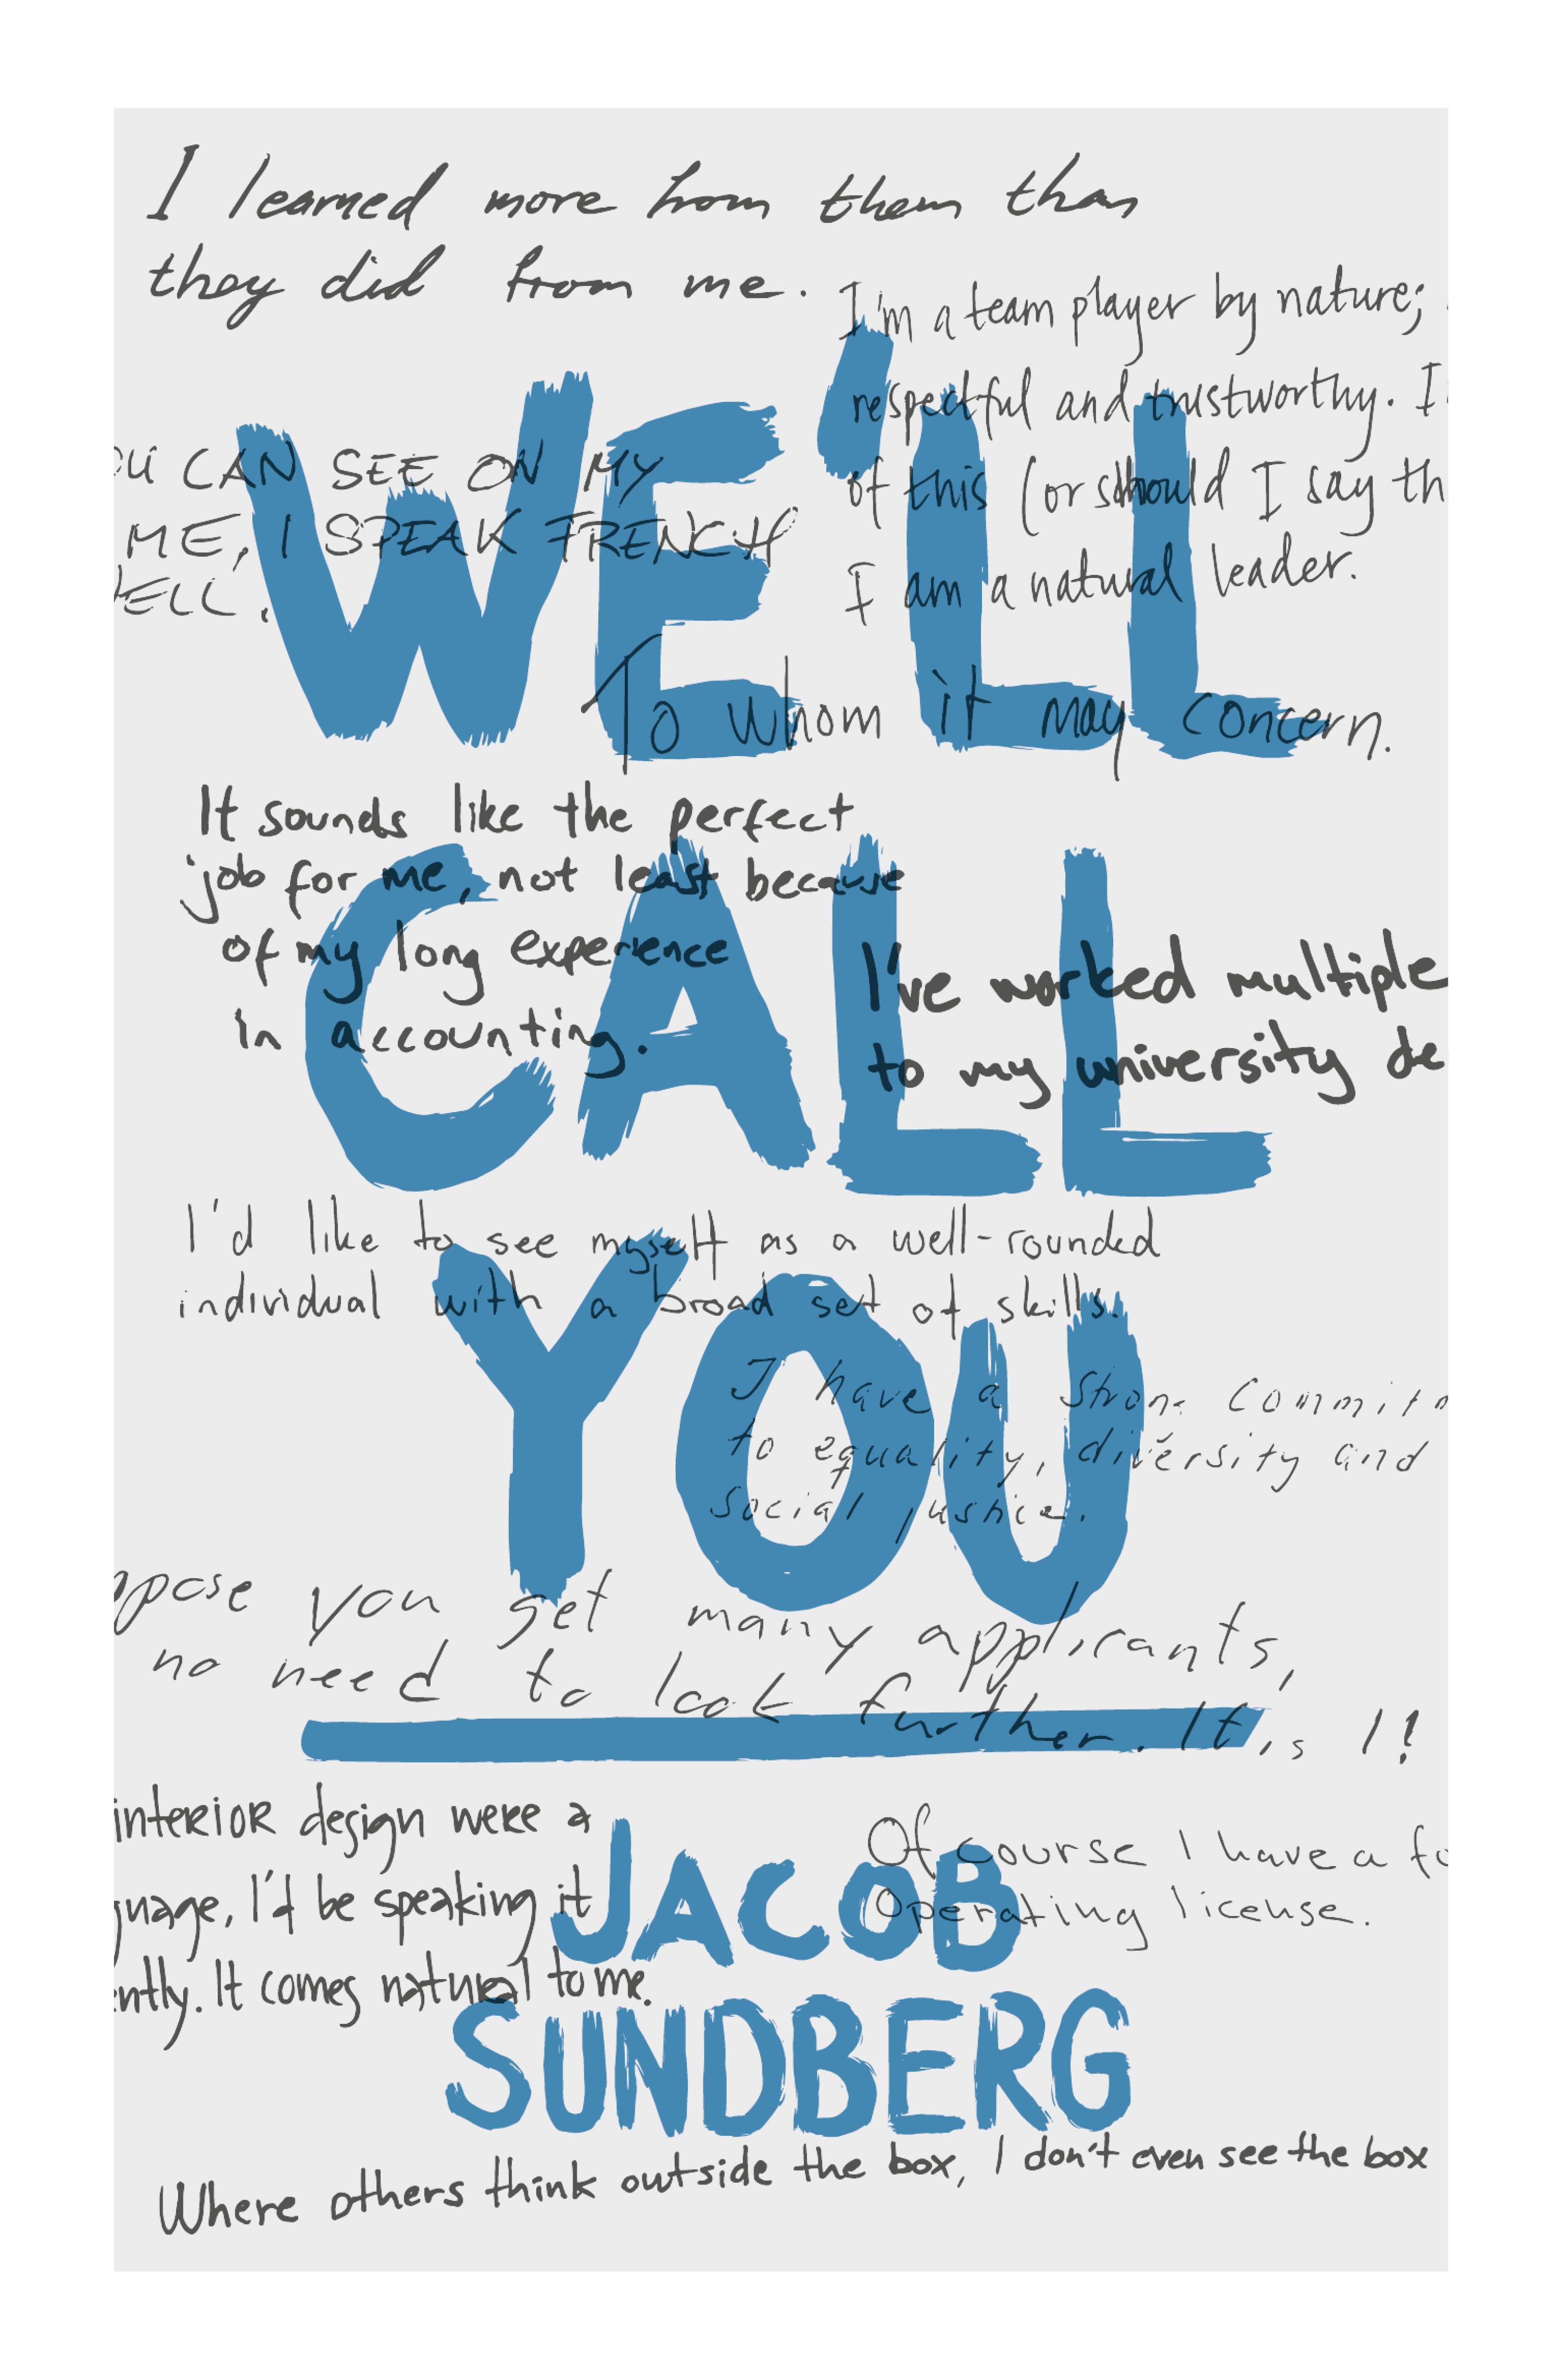 I learned more from them than
they did from me.
I'm a team player by nature;
respectful and trustworthy. I
of this (or should I say th
I am a natural leader.
OU CAN SEE ON MY
ME, I SPEAK FRENCH
WELL.
WE'LL
To whom it may concern.
It sounds like the perfect
job for me, not least because
of my long experience
in accounting.
I've worked multiple
to my university de
CALL
I'd like to see myself as a well-rounded
individual with a broad set of skills.
YOU
I have a strong commitm
to equality, diversity and
social justice.
ppose you get many applicants,
no need to look further. It is I!
interior design were a
guage, I'd be speaking it
ently. It comes natural to me.
Of course I have a fo
Operating license.
JACOB
SUNDBERG
Where others think outside the box, I don't even see the box